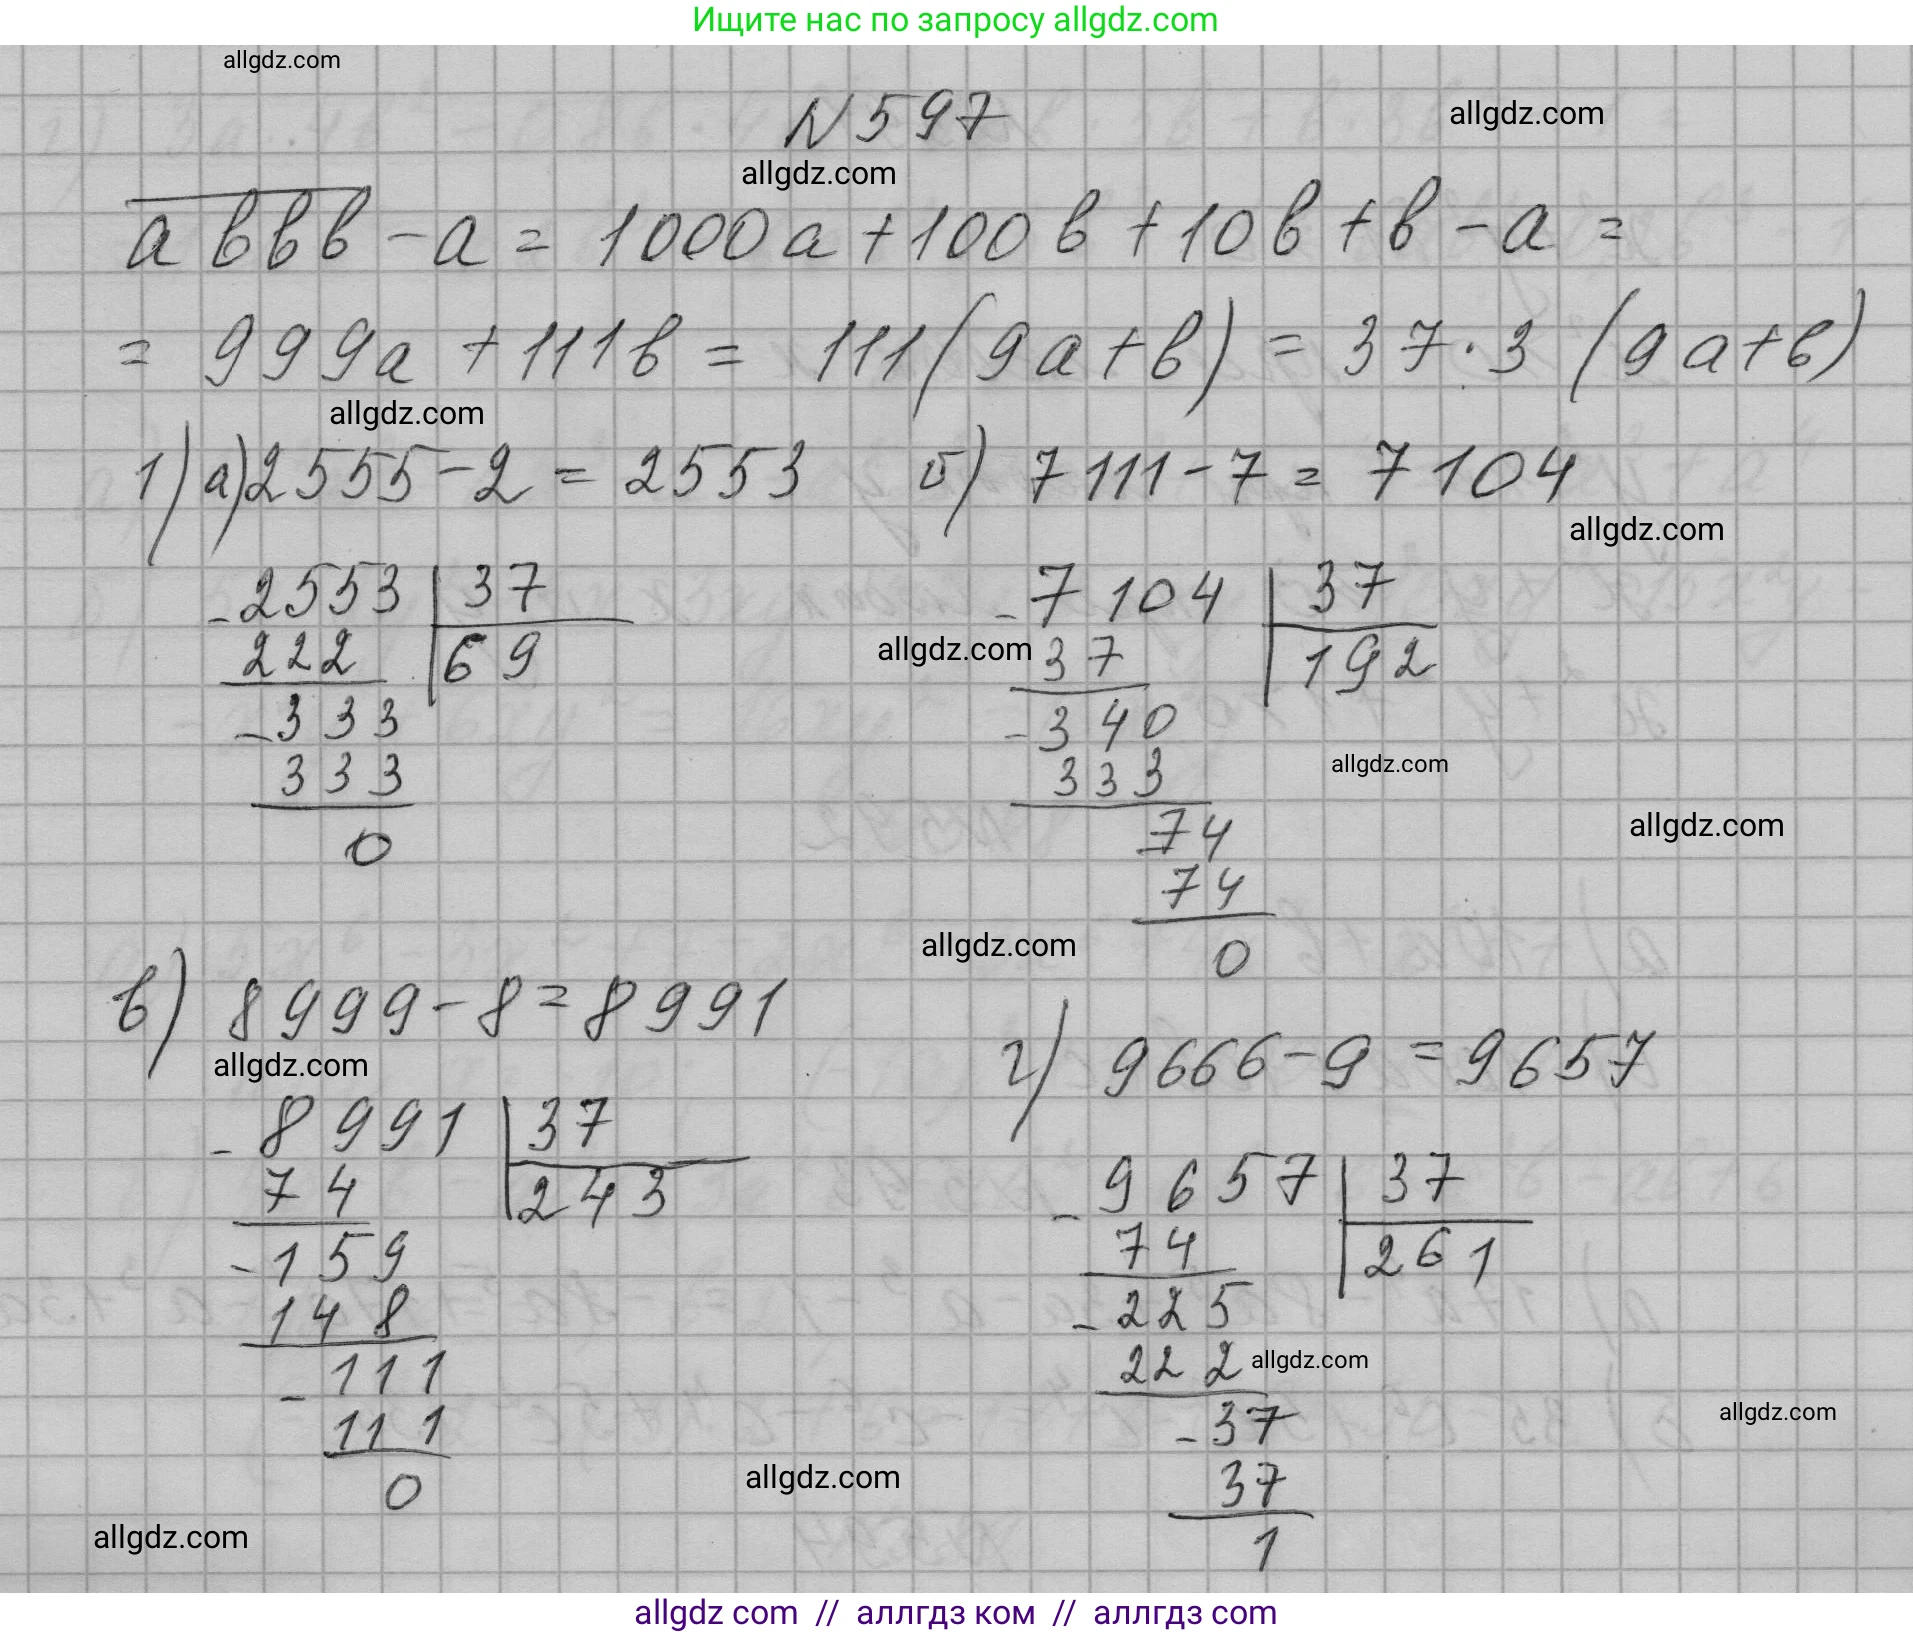 Ищите нас по запросу allgdz.com
allgdz.com
N 597
allgdz.com
allgdz.com
aввв - a = 1000a + 100в + 10в + в - a =
= 999a + 111в = 111(9a+в) = 37·3 (9a+в)
allgdz.com
1) а) 2555 - 2 = 2553 б) 7111 - 7 = 7104
allgdz.com
- 2553 | 37
222 | 69
- 333
333
0
- 7104 | 37
allgdz.com
37 | 192
- 340
333
allgdz.com
allgdz.com
- 74
74
0
allgdz.com
в) 8999 - 8 = 8991
allgdz.com
- 8991 | 37
74 | 243
- 159
148
- 111
111
0
г) 9666 - 9 = 9657
- 9657 | 37
74 | 261
- 225
222
allgdz.com
- 37
37
1
allgdz.com
allgdz.com
allgdz.com
allgdz com // аллгдз ком // аллгдз com